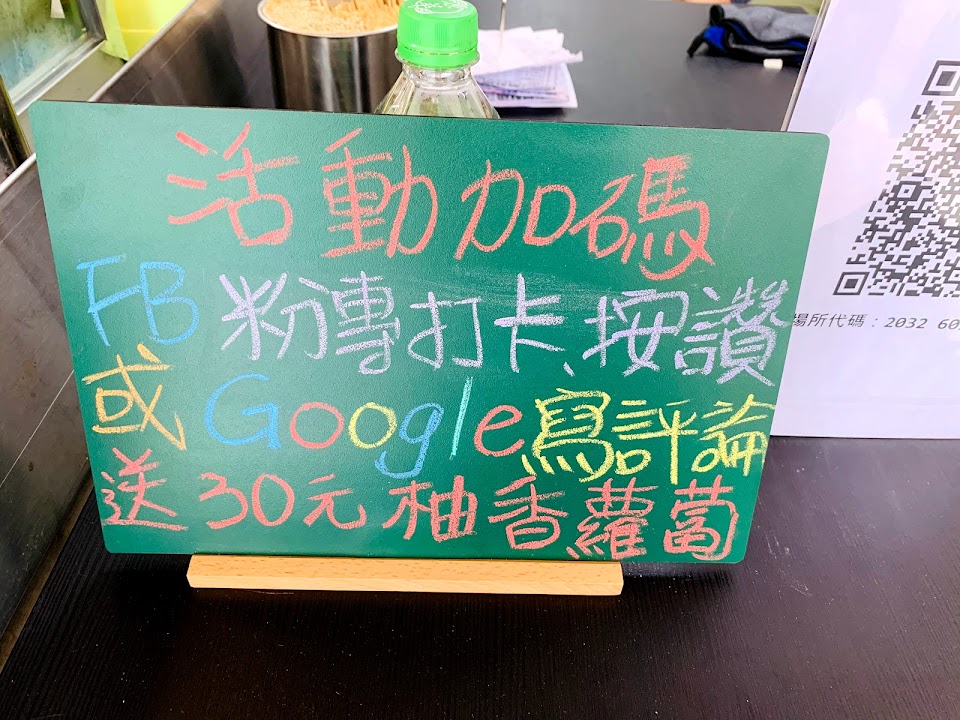 活動加碼
FB 粉專打卡、按讚
或 Google 寫評論
送 30元 柚香蘿蔔
場所代碼：2032 60